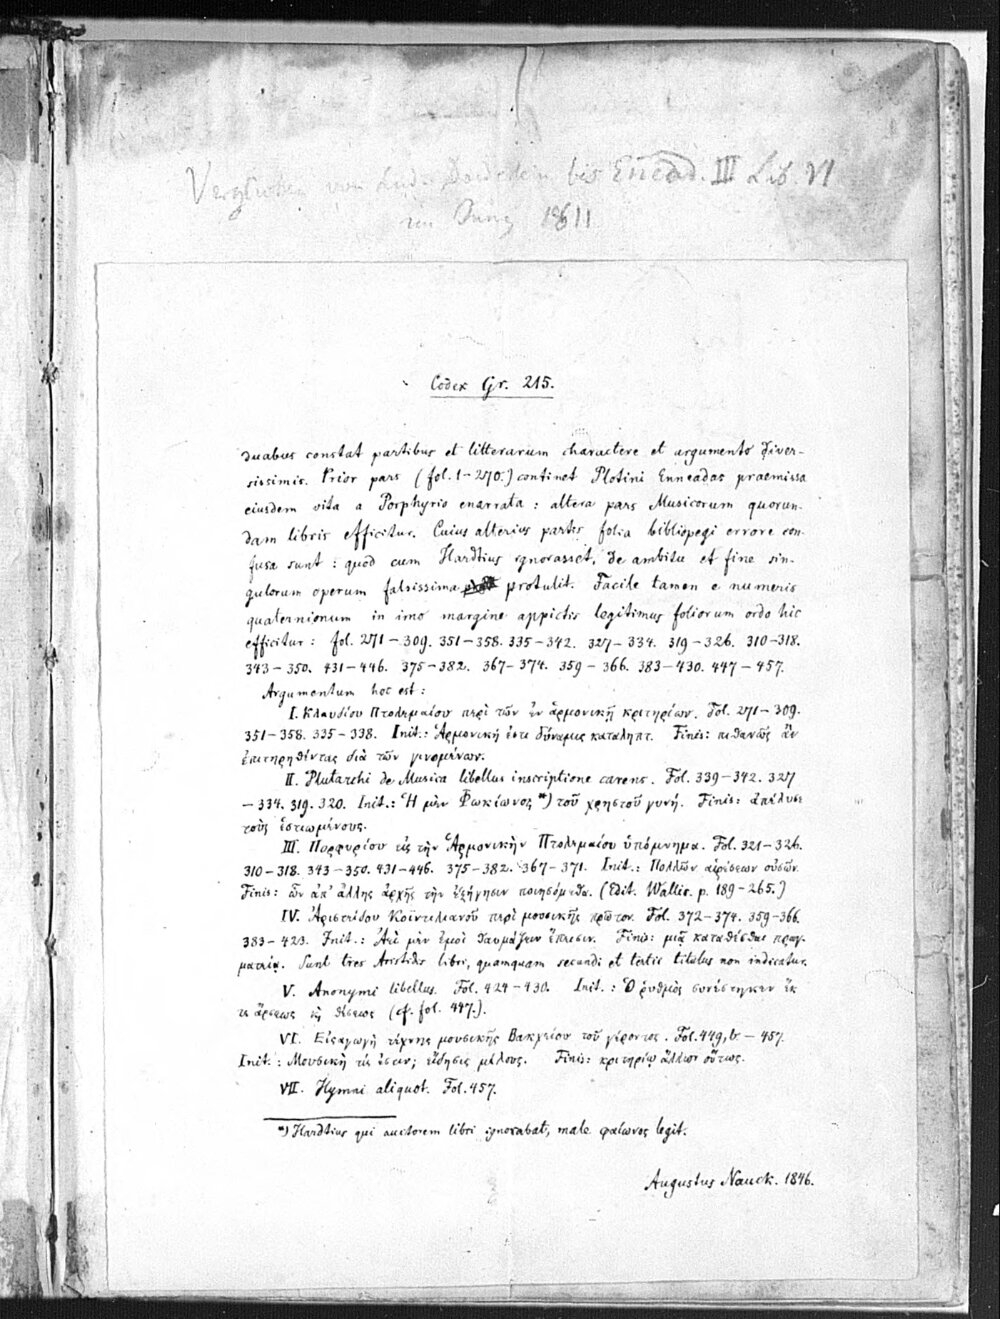 Verglichen von Lud. Doederlein bis Ennead. III Lib. VI
im Juny 1811
Codex Gr. 215.
duabus constat partibus et litterarum charactere et argumento diver-
sissimis. Prior pars (fol. 1–270.) continet Plotini Enneadas praemissa
eiusdem vita a Porphyrio enarrata: altera pars Musicorum quorun-
dam libris efficitur. Cuius alterius partis folia bibliopegi errore con-
fusa sunt: quod cum Hardtius ignorasset, de ambitu et fine sin-
gulorum operum falsissima protulit. Facile tamen e numeris
quaternionum in imo margine appictis legitimus foliorum ordo hic
efficitur: fol. 271–309. 351–358. 335–342. 327–334. 319–326. 310–318.
343–350. 431–446. 375–382. 367–374. 359–366. 383–430. 447–457.
Argumentum hoc est:
I. Κλαυδίου Πτολεμαίου περὶ τῶν ἐν ἁρμονικῇ κριτηρίων. Fol. 271–309.
351–358. 335–338. Init.: Ἁρμονική ἐστι δύναμις καταληπτ. Finis: πιθανῶς ἂν
ἐπιτηρηθέντας διὰ τῶν γινομένων.
II. Plutarchi de Musica libellus inscriptione carens. Fol. 339–342. 327
–334. 319. 320. Init.: Ἡ μὲν Φωκίωνος *) τοῦ χρηστοῦ γυνή. Finis: ἀπέλυσε
τοὺς ἑστιωμένους.
III. Πορφυρίου εἰς τὴν Ἁρμονικὴν Πτολεμαίου ὑπόμνημα. Fol. 321–326.
310–318. 343–350. 431–446. 375–382. 367–371. Init.: Πολλῶν αἱρέσεων οὐσῶν.
Finis: ὧν ἀπ' ἄλλης ἀρχῆς τὴν ἐξήγησιν ποιησόμεθα. (Edit. Wallis. p. 189–265.)
IV. Ἀριστείδου Κοϊντιλιανοῦ περὶ μουσικῆς πρῶτον. Fol. 372–374. 359–366.
383–423. Init.: Ἀεὶ μὲν ἐμοὶ θαυμάζειν ἔπεισιν. Finis: μιᾷ καταθέσθαι πραγ-
ματείᾳ. Sunt tres Aristidis libri, quamquam secundi et tertii titulus non indicatur.
V. Anonymi libellus. Fol. 424–430. Init.: Ὁ ῥυθμὸς συνέστηκεν ἔκ
τε ἄρσεως καὶ θέσεως (cf. fol. 447.).
VI. Εἰσαγωγὴ τέχνης μουσικῆς Βακχείου τοῦ γέροντος. Fol. 449, b – 457.
Init.: Μουσικὴ τίς ἐστιν; εἴδησις μέλους. Finis: κριτηρίῳ ἄλλων οὕτως.
VII. Hymni aliquot. Fol. 457.
*) Hardtius qui auctorem libri ignorabat, male φαίωνος legit.
Augustus Nauck. 1846.